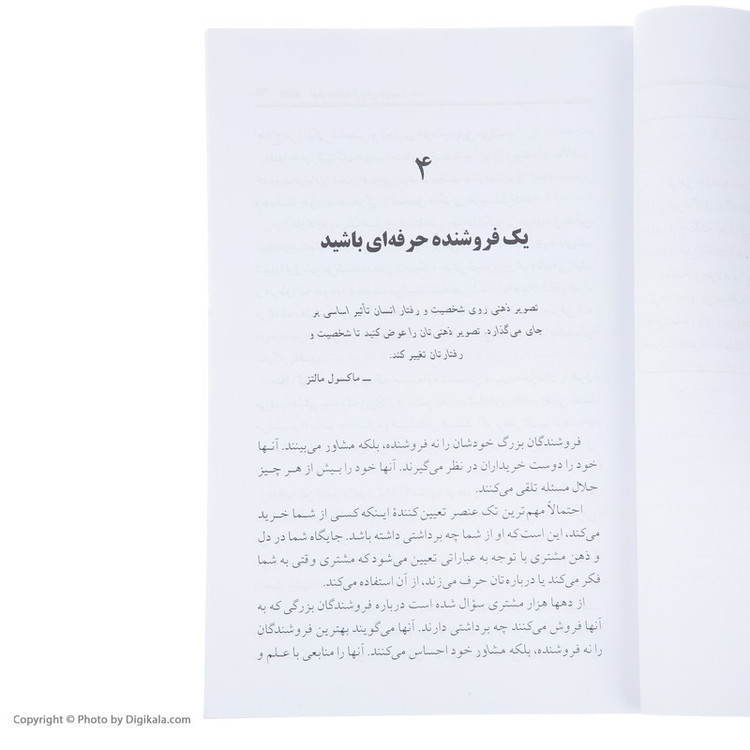 ۴
یک فروشنده حرفه‌ای باشید
تصویر ذهنی روی شخصیت و رفتار انسان تأثیر اساسی بر
جای می‌گذارد. تصویر ذهنی‌تان را عوض کنید تا شخصیت و
رفتارتان تغییر کند.
ــ ماکسول مالتز
فروشندگان بزرگ خودشان را نه فروشنده، بلکه مشاور می‌بینند. آنها
خود را دوست خریداران در نظر می‌گیرند. آنها خود را بیش از هر چیز
حلال مسئله تلقی می‌کنند.
احتمالاً مهم‌ترین تک عنصر تعیین‌کنندهٔ اینکه کسی از شما خرید
می‌کند، این است که او از شما چه برداشتی داشته باشد. جایگاه شما در دل
و ذهن مشتری با توجه به عباراتی تعیین می‌شود که مشتری وقتی به شما
فکر می‌کند یا درباره‌تان حرف می‌زند، از آن استفاده می‌کند.
از دهها هزار مشتری سؤال شده است درباره فروشندگان بزرگی که به
آنها فروش می‌کنند چه برداشتی دارند. آنها می‌گویند بهترین فروشندگان
را نه فروشنده، بلکه مشاور خود احساس می‌کنند. آنها را منابعی با علم و
Copyright © Photo by Digikala.com